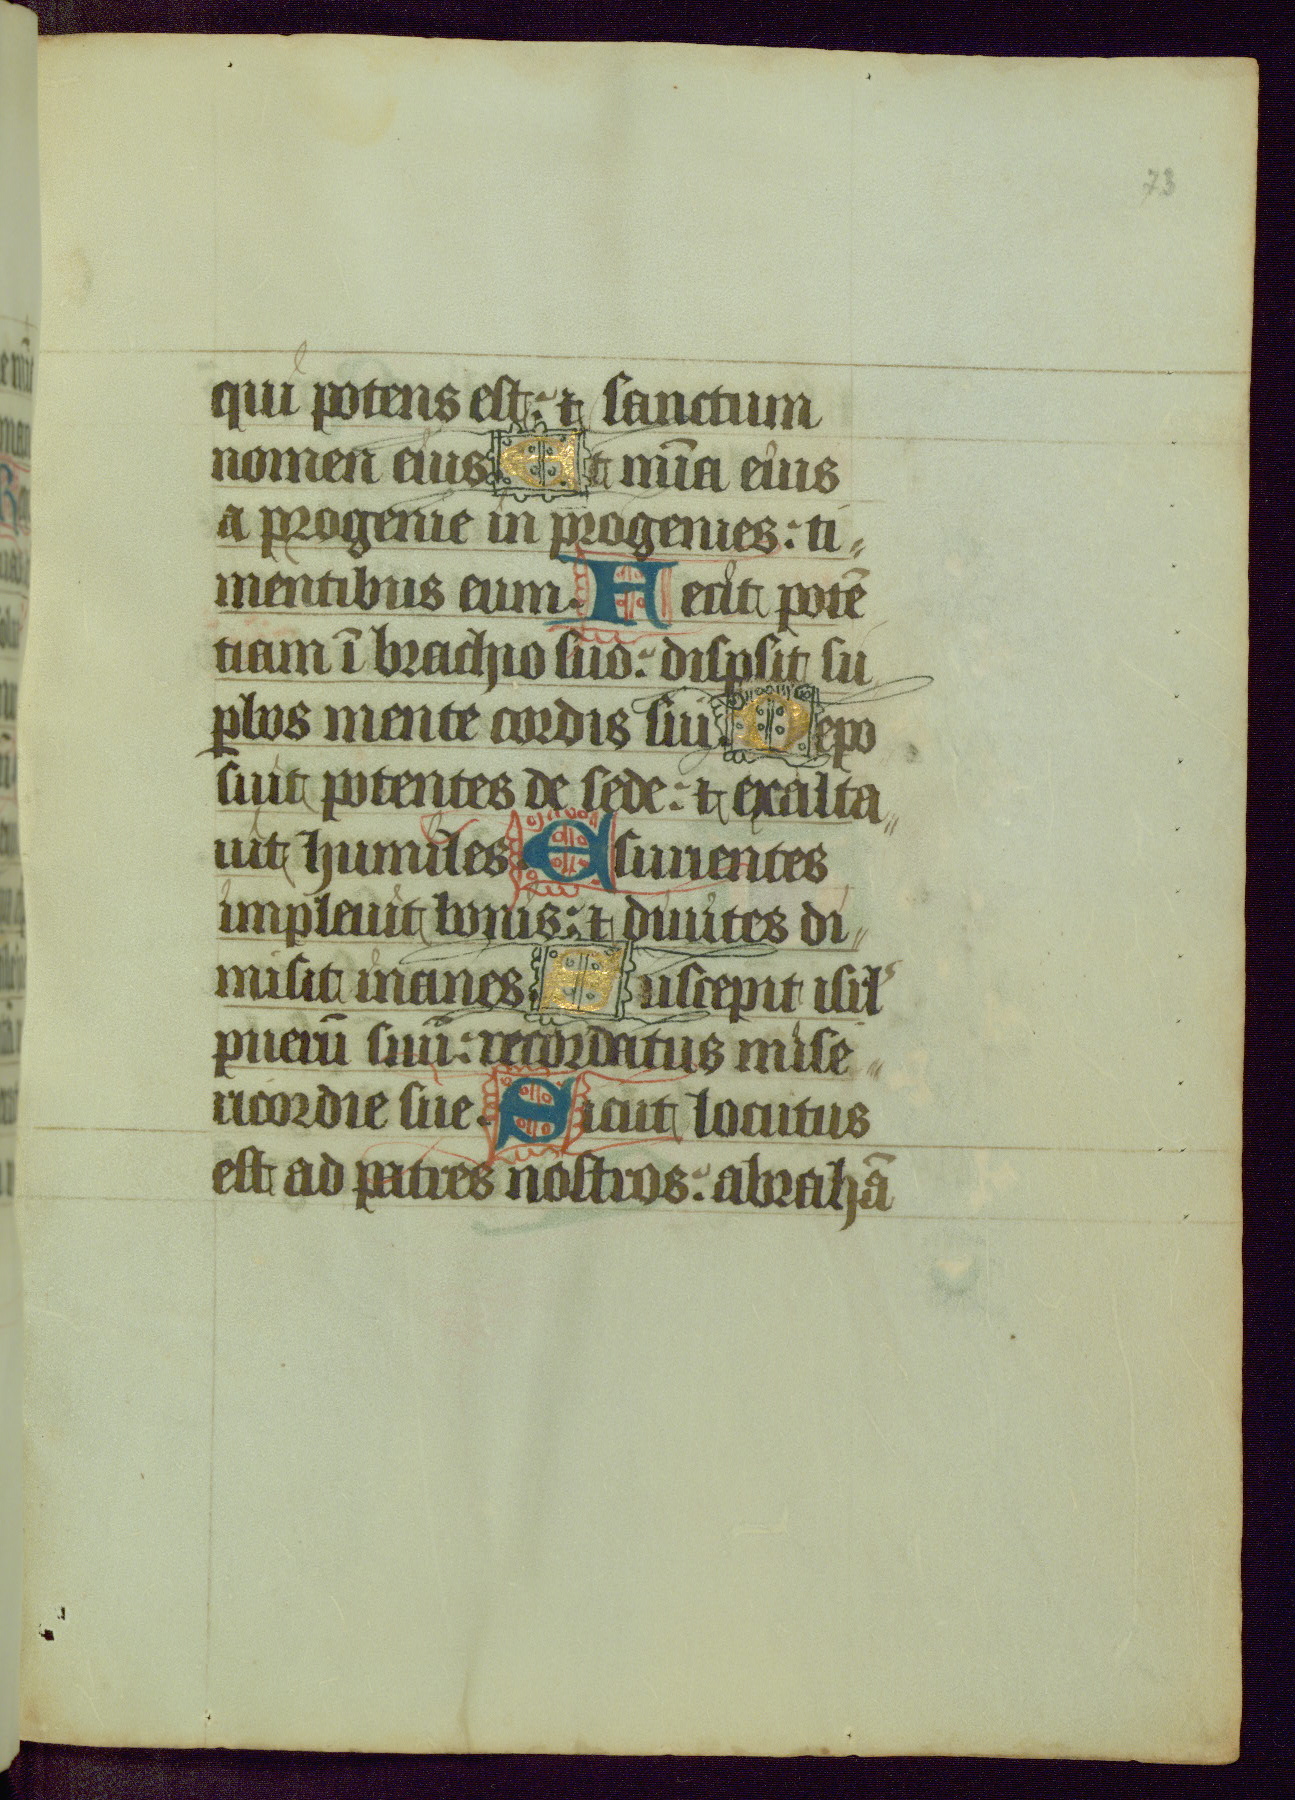 73
qui potens est: et sanctum
nomen eius. Et mīa eius
a progenie in progenies: ti〃
mentibus eum. Fecit potē
tiam ī brachio suo: dispsit su
pbos mente cordis sui. Depo
suit potentes de sede: et exalta〃
uit humiles. Esurientes
impleuit bonis: et diuites di〃
misit inanes. Suscepit isrl'
puerū suū: recordatus mise〃
ricordie sue. Sicut locutus
est ad patres nostros: abrahā